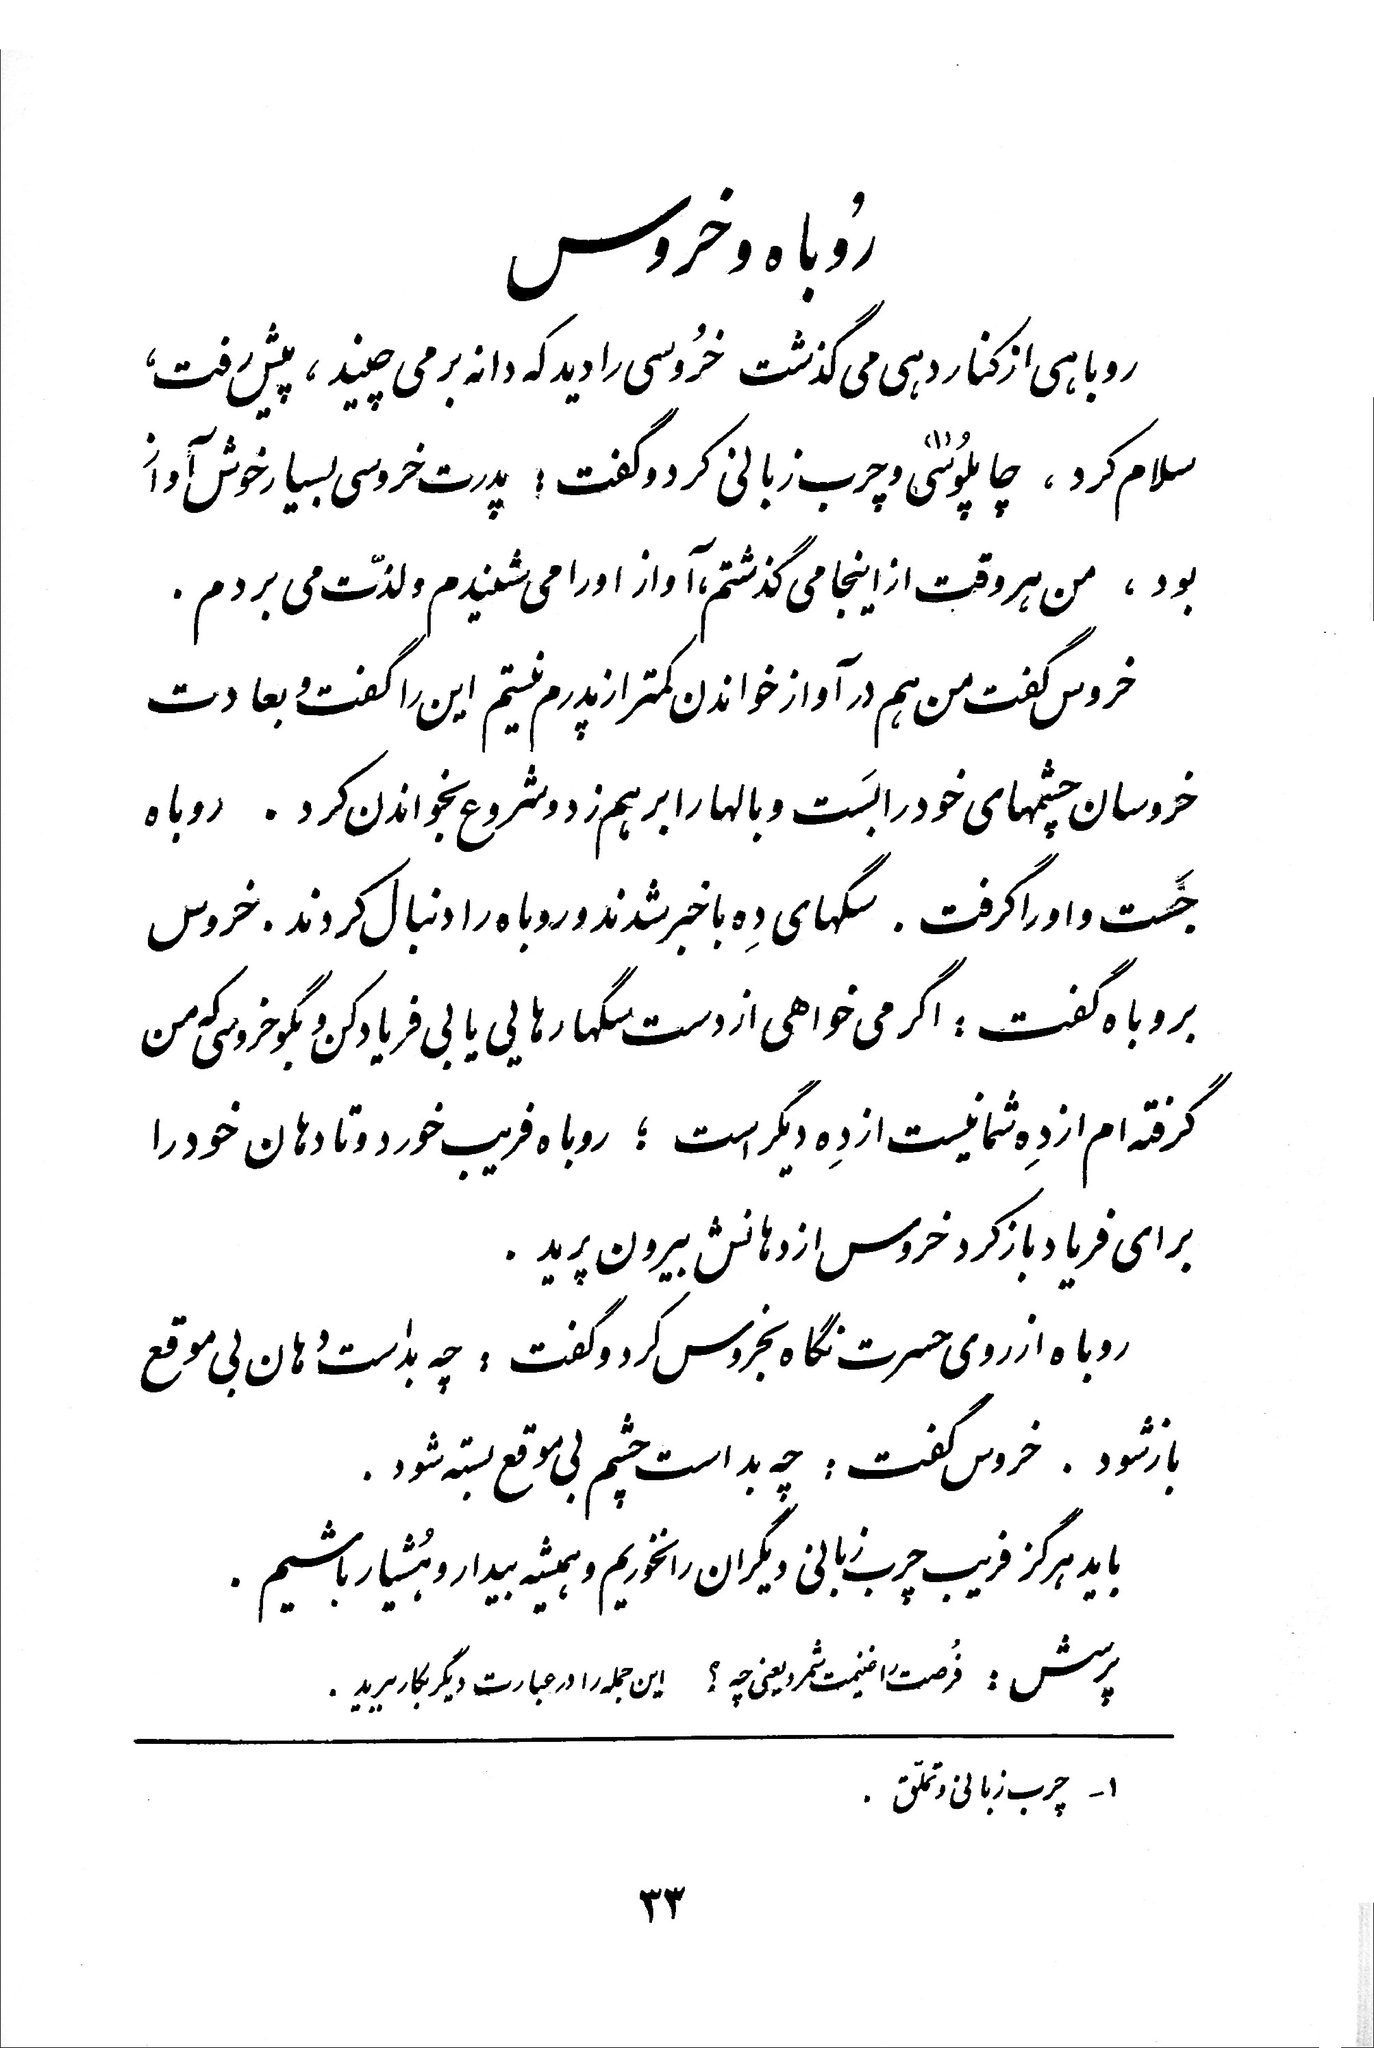 رُوباه و خروس
روباهی از کنار دهی می گذشت خرُوسی را دید که دانه برمی چیند ، پیش رفت ،
سلام کرد ، چاپلوُسی (۱) و چرب زبانی کرد و گفت : پدرت خروسی بسیار خوش آواز
بود ، من هر وقت از اینجا می گذشتم ، آواز او را می شنیدم و لذّت می بردم .
خروس گفت من هم در آواز خواندن کمتر از پدرم نیستم این را گفت و بعادت
خروسان چشمهای خود را بَست و بالها را برهم زد و شروع بخواندن کرد . روباه
جَست و او را گرفت . سگهای دِه با خبر شدند و روباه را دنبال کردند . خروس
بروباه گفت : اگر می خواهی از دست سگها رهایی یابی فریاد کن و بگو خروسی که من
گرفته ام از دِه شما نیست از دِه دیگر است ؛ روباه فریب خورد و تا دهان خود را
برای فریاد باز کرد خروس از دهانش بیرون پرید .
روباه از روی حسرت نگاه بخروس کرد و گفت : چه بد است دهان بی موقع
باز شود . خروس گفت : چه بد است چشم بی موقع بسته شود .
باید هرگز فریب چرب زبانی دیگران را نخوریم و همیشه بیدار و هُشیار باشیم .
پرسش : فُرصت را غنیمت شمرد یعنی چه ؟ این جمله را در عبارت دیگر بکار ببرید .
۱- چرب زبانی و تملّق .
۳۳